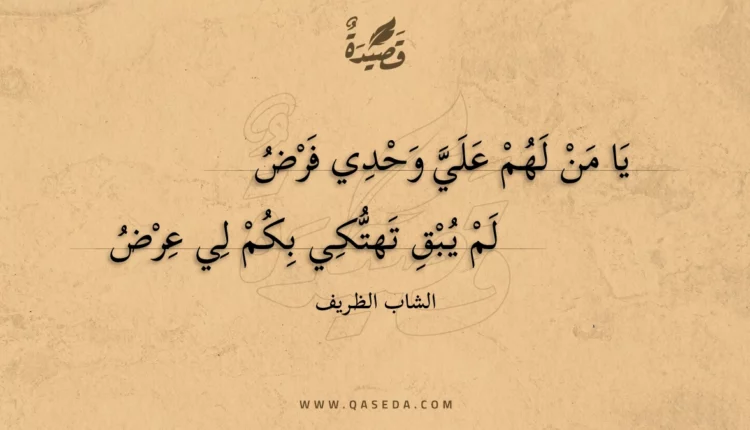 قَصِيدَةٌ
يَا مَنْ لَهُمْ عَلَيَّ وَحْدِي فَرْضُ
لَمْ يُبْقِ تَهتُّكِي بِكُمْ لِي عِرْضُ
الشاب الظريف
WWW.QASEDA.COM